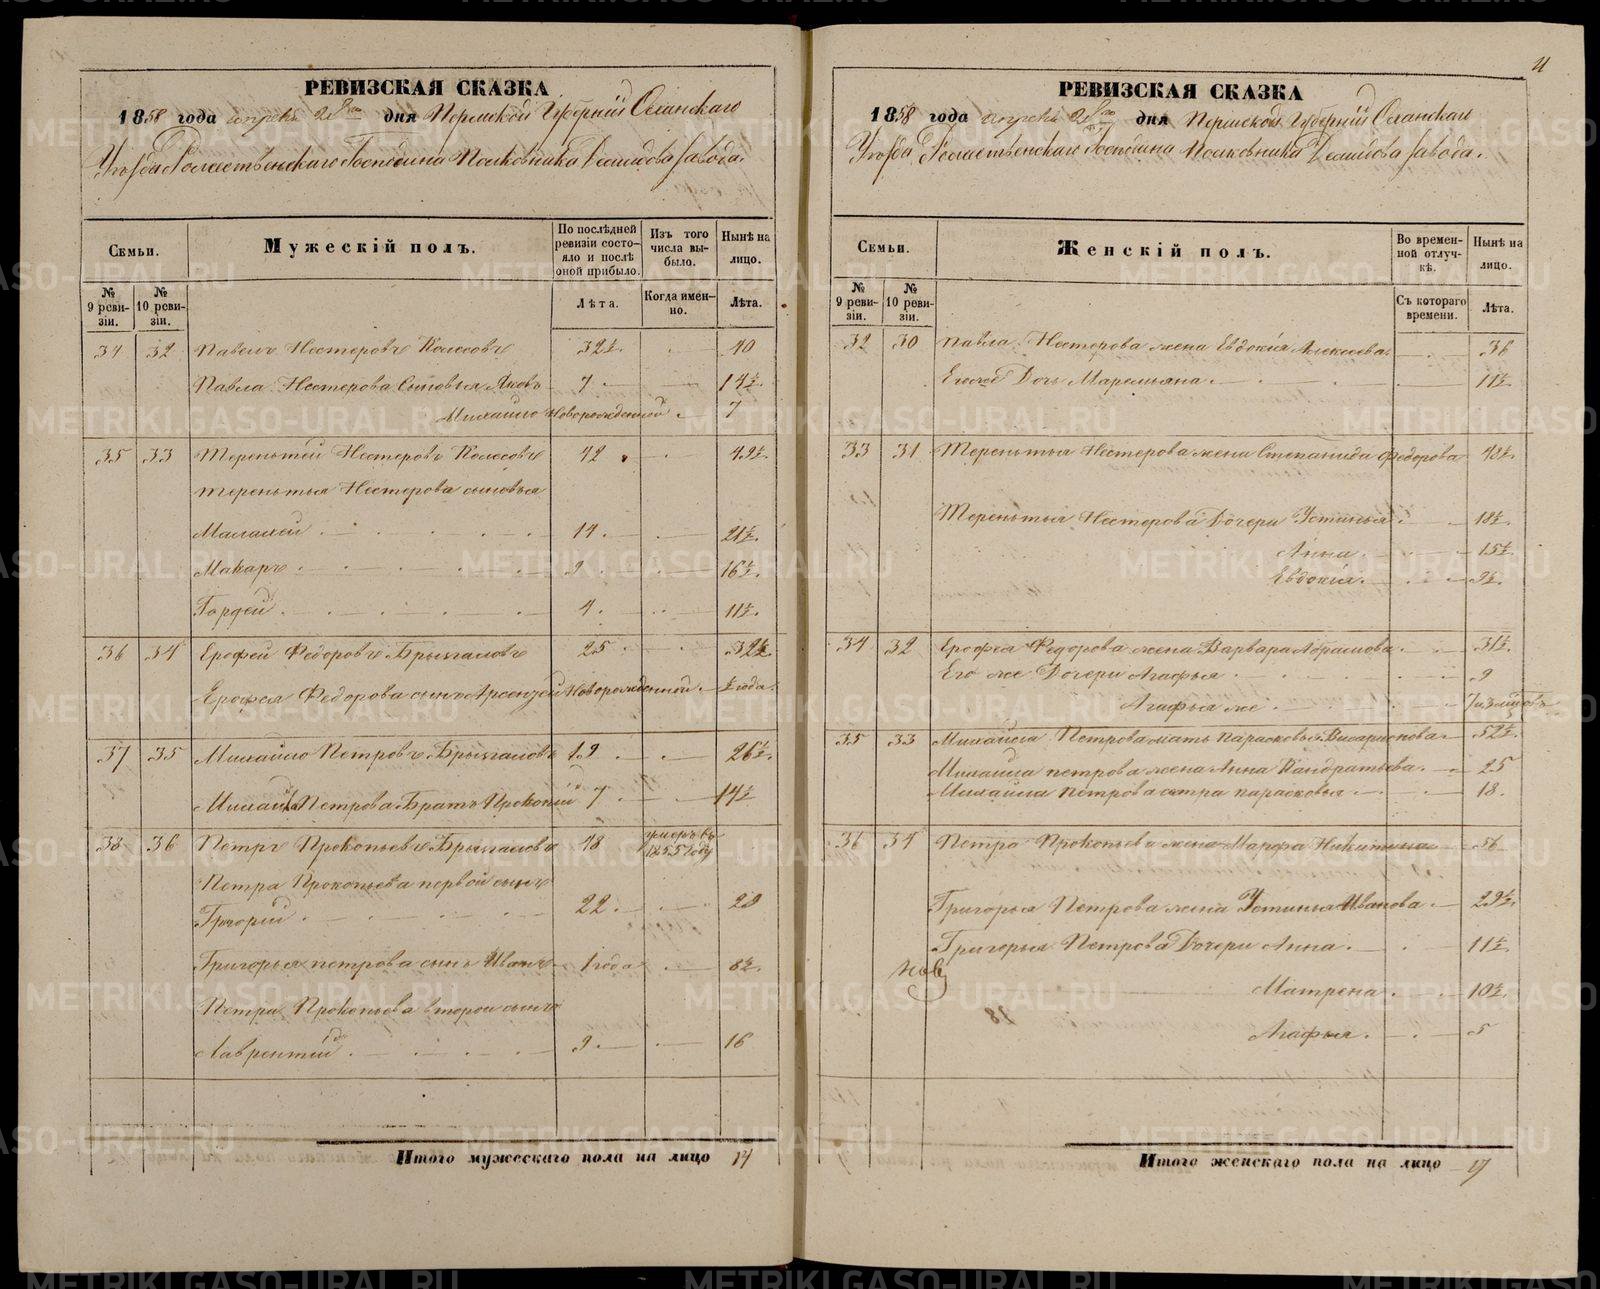 РЕВИЗСКАЯ СКАЗКА
1858 года апреля 28го дня Пермской Губернии Оханскаго
Уезда Рождественскаго Господина Полковника Демидова завода.
Семьи.
Мужескій полъ.
По послѣдней ревизіи состояло и послѣ оной прибыло.
Изъ того числа выбыло.
Нынѣ на лицо.
№ 9 ревизіи.
№ 10 ревизіи.
Лѣта.
Когда именно.
Лѣта.
34 32 Павелъ Нестеровъ Колесовъ 32½. 40
Павла Нестерова Сыновья Яковъ 7 14½.
Михайло Новорожденной. 7
35 33 Терентей Нестеровъ Колесовъ 42 49½.
Терентья Нестерова сыновья
Малахей 14. 21½.
Макаръ 9 16½.
Гордей 4. 11½.
36 34 Ерофей Федоровъ Брызгаловъ 25 32½.
Ерофея Федорова сынъ Арсентей Новорожденной. ½ года.
37 35 Михайло Петровъ Брызгаловъ 19 26½.
Михайла Петрова Братъ Прокопій 7 14½
38 36 Петръ Прокопьевъ Брызгаловъ 48 умеръ въ 1855 году
Петра Прокопьева первой сынъ
Григорій 22. 29
Григорья петрова сынъ Иванъ 1 года 8½.
Петра Прокопьева второй сынъ
Лаврентій 9 16
Итого мужескаго пола на лицо 14
4
РЕВИЗСКАЯ СКАЗКА
1858 года апреля 28го дня Пермской Губернии Оханскаго
Уезда Рождественскаго Господина Полковника Демидова завода.
Семьи.
Женскій полъ.
Во временной отлучкѣ.
Нынѣ на лицо.
№ 9 ревизіи.
№ 10 ревизіи.
Съ котораго времени.
Лѣта.
32 30 Павла Нестерова жена Евдокія Алексеева 36
Егоже Дочь Маремьяна. 11½.
33 31 Терентья Нестерова жена Степанида Федорова 48½.
Терентья Нестерова Дочери Устинья. 18½.
Анна. 15½.
Евдокія. 9½.
34 32 Ерофея Федорова жена Варвара Абрамова 31½.
Его же Дочери Агафья 9
Агафья же
35 33 Михайла Петрова мать Парасковья 52½.
Михайла петрова жена Анна Кандратьева. 25
Михайла петрова сестра парасковья 18.
36 34 Петра Прокопьева жена Марфа Никитина 56
Григорья Петрова жена Устинья Иванова. 29½.
Григорья Петрова Дочери Анна. 11½.
Матрена 10½.
Агафья. 5
Итого женскаго пола на лицо 17
METRIKI.GASO-URAL.RU